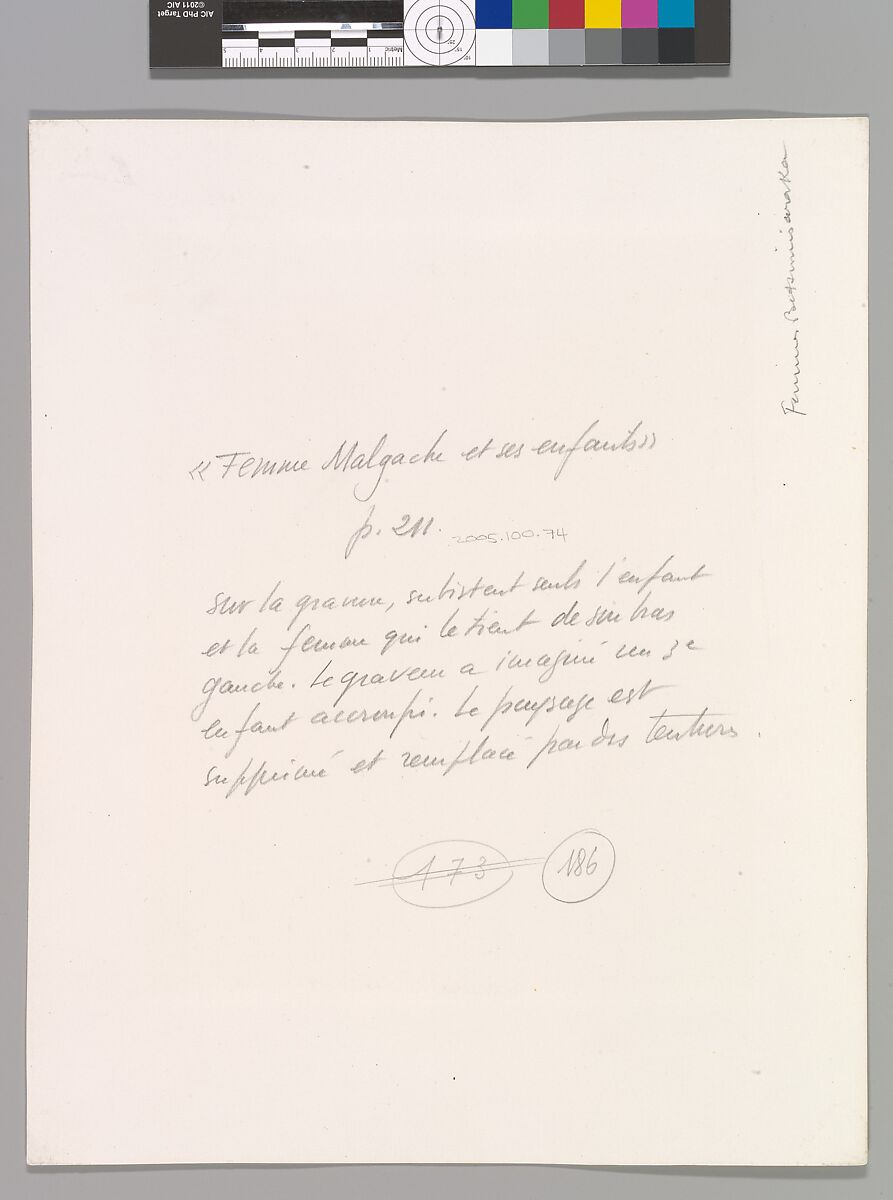 « Femme Malgache et ses enfants »
p. 211.
2005.100.74
Sur la gravure, subsistent seuls l'enfant
et la femme qui le tient de son bras
gauche. Le graveur a imaginé un 3e
enfant accroupi. Le paysage est
supprimé et remplacé par des tentures.
173
186
Femmes Betsimisaraka
AIC PhD Target
©2011 AIC